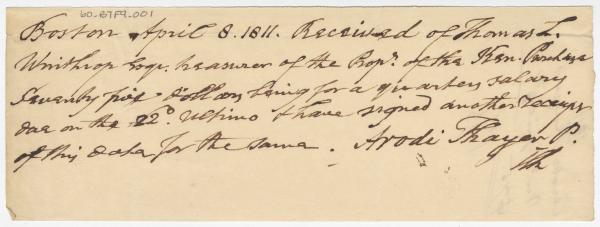 60-B7F9-001
Boston April 8. 1811. Received of Thomas L.
Winthrop Esqr. treasurer of the Propr. of the Ken. Purchase
Seventy five dollars being for a quarters salary
due on the 22d. Ultimo I have signed another receipt
of this date for the same. Arodi Thayer P.